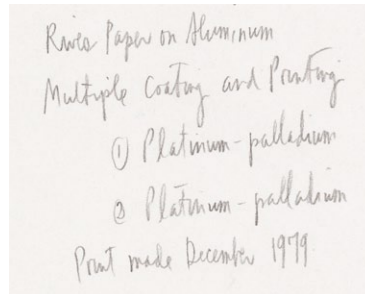 Rives Paper on Aluminum
Multiple Coating and Printing
① Platinum-palladium
② Platinum-palladium
Print made December 1979